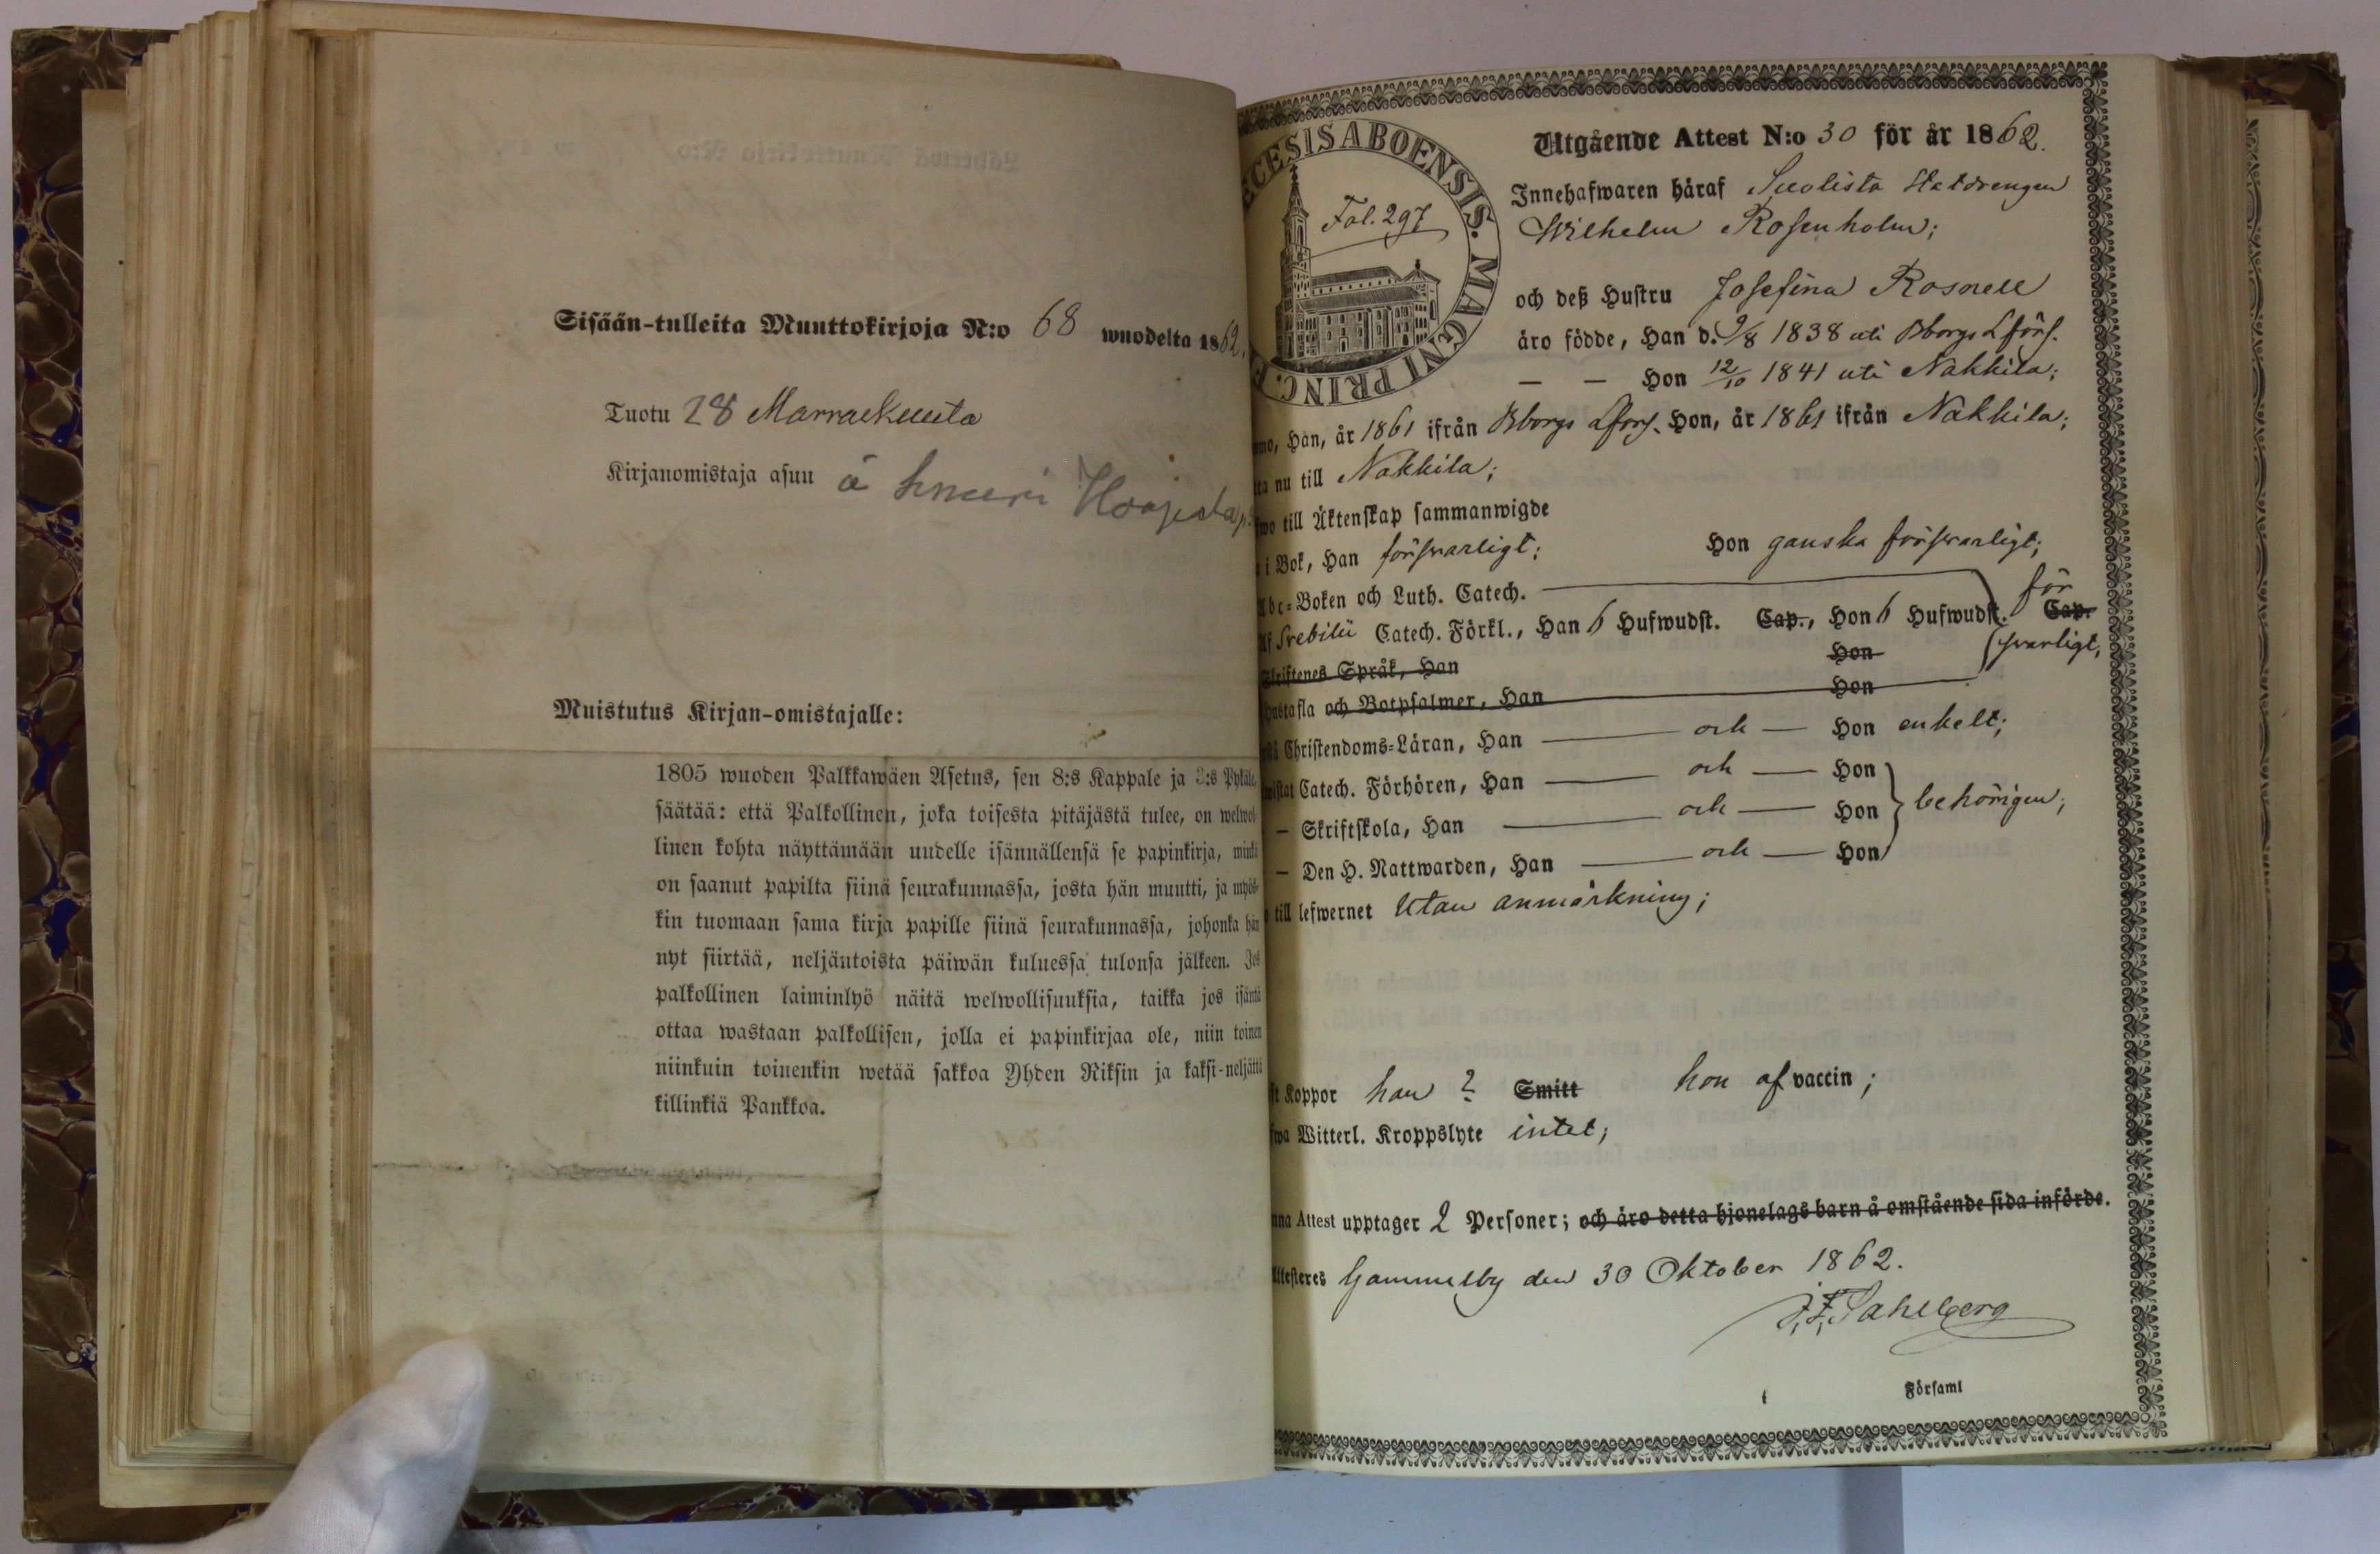 Sisään-tulleita Muuttokirjoja N:o 68 wuodelta 1862.
Tuotu 28 Marraskuuta
Kirjanomistaja asuu
Muistutus Kirjan-omistajalle:
1805 wuoden Palkkawäen Asetus, sen 8:s Kappale ja 3:s Pykälä
säätää: että Palkollinen, joka toisesta pitäjästä tulee, on welwol-
linen kohta näyttämään uudelle isännällensä se papinkirja, minkä
on saanut papilta siinä seurakunnassa, josta hän muutti, ja myös-
kin tuomaan sama kirja papille siinä seurakunnassa, johonka hän
nyt siirtää, neljäntoista päiwän kuluessa tulonsa jälkeen. Jos
palkollinen laiminlyö näitä welwollisuuksia, taikka jos isäntä
ottaa wastaan palkollisen, jolla ei papinkirjaa ole, niin toinen
niinkuin toinenkin wetää sakkoa Yhden Riksin ja kaksi-neljättä
killinkiä Pankkoa.
ECESIS ABOENSIS. MAGNI PRINC. F
Fol. 297
Utgående Attest N:o 30 för år 1862.
Innehafwaren häraf Suolista Statdrengen
Wilhelm Rosenholm;
och deß Hustru Josefina Rosnell
äro födde, Han d. 9/8 1838 uti Bborgs Lförs.
— — Hon 12/10 1841 uti Nakkila;
mo, Han, år 1861 ifrån Bborgs Lförs. Hon, år 1861 ifrån Nakkila;
ta nu till Nakkila;
wo till Äktenskap sammanwigde
i Bok, Han försvarligt; Hon ganska försvarligt;
Abc-Boken och Luth. Catech. för
Af Svebilii Catech. Förkl., Han 6 Hufwudst. Cap., Hon 6 Hufwudst. Cap.
svarligt,
Skriftenes Språk, Han Hon
Hustafla och Botpsalmer, Han Hon
Christendoms-Läran, Han — och — Hon enkelt;
wistat Catech. Förhören, Han — och — Hon
— Skriftskola, Han — och — Hon behörigen;
— Den H. Nattwarden, Han — och — Hon
till lefwernet Utan anmärkning;
Koppor han ? Smitt hon af vaccin;
wa Witterl. Kroppslyte intet;
nna Attest upptager 2 Personer; och äro detta hjonelags barn å omstående sida införde.
Attesteres Gammelby den 30 Oktober 1862.
J. F. Sahlberg
Församl